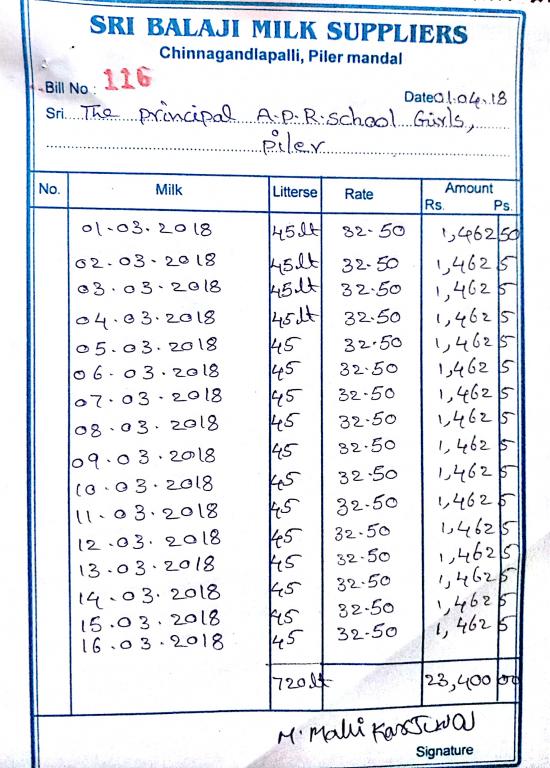 SRI BALAJI MILK SUPPLIERS
Chinnagandlapalli, Piler mandal
Bill No : 116
Date 01.04.18
Sri. The principal A.P.R. school Girls,
Piler
No. Milk Litterse Rate Amount
Rs. Ps.
01.03.2018 45lt 32.50 1,462 50
02.03.2018 45lt 32.50 1,462 5
03.03.2018 45lt 32.50 1,462 5
04.03.2018 45lt 32.50 1,462 5
05.03.2018 45 32.50 1,462 5
06.03.2018 45 32.50 1,462 5
07.03.2018 45 32.50 1,462 5
08.03.2018 45 32.50 1,462 5
09.03.2018 45 32.50 1,462 5
10.03.2018 45 32.50 1,462 5
11.03.2018 45 32.50 1,462 5
12.03.2018 45 32.50 1,462 5
13.03.2018 45 32.50 1,462 5
14.03.2018 45 32.50 1,462 5
15.03.2018 45 32.50 1,462 5
16.03.2018 45 32.50 1,462 5
720lt 23,400 00
Signature